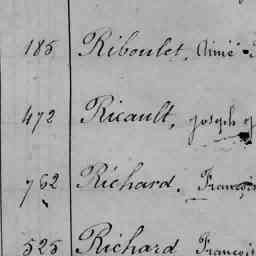 185 Riboulet, Aimé
472 Ricault, Joseph
762 Richard, François
525 Richard François